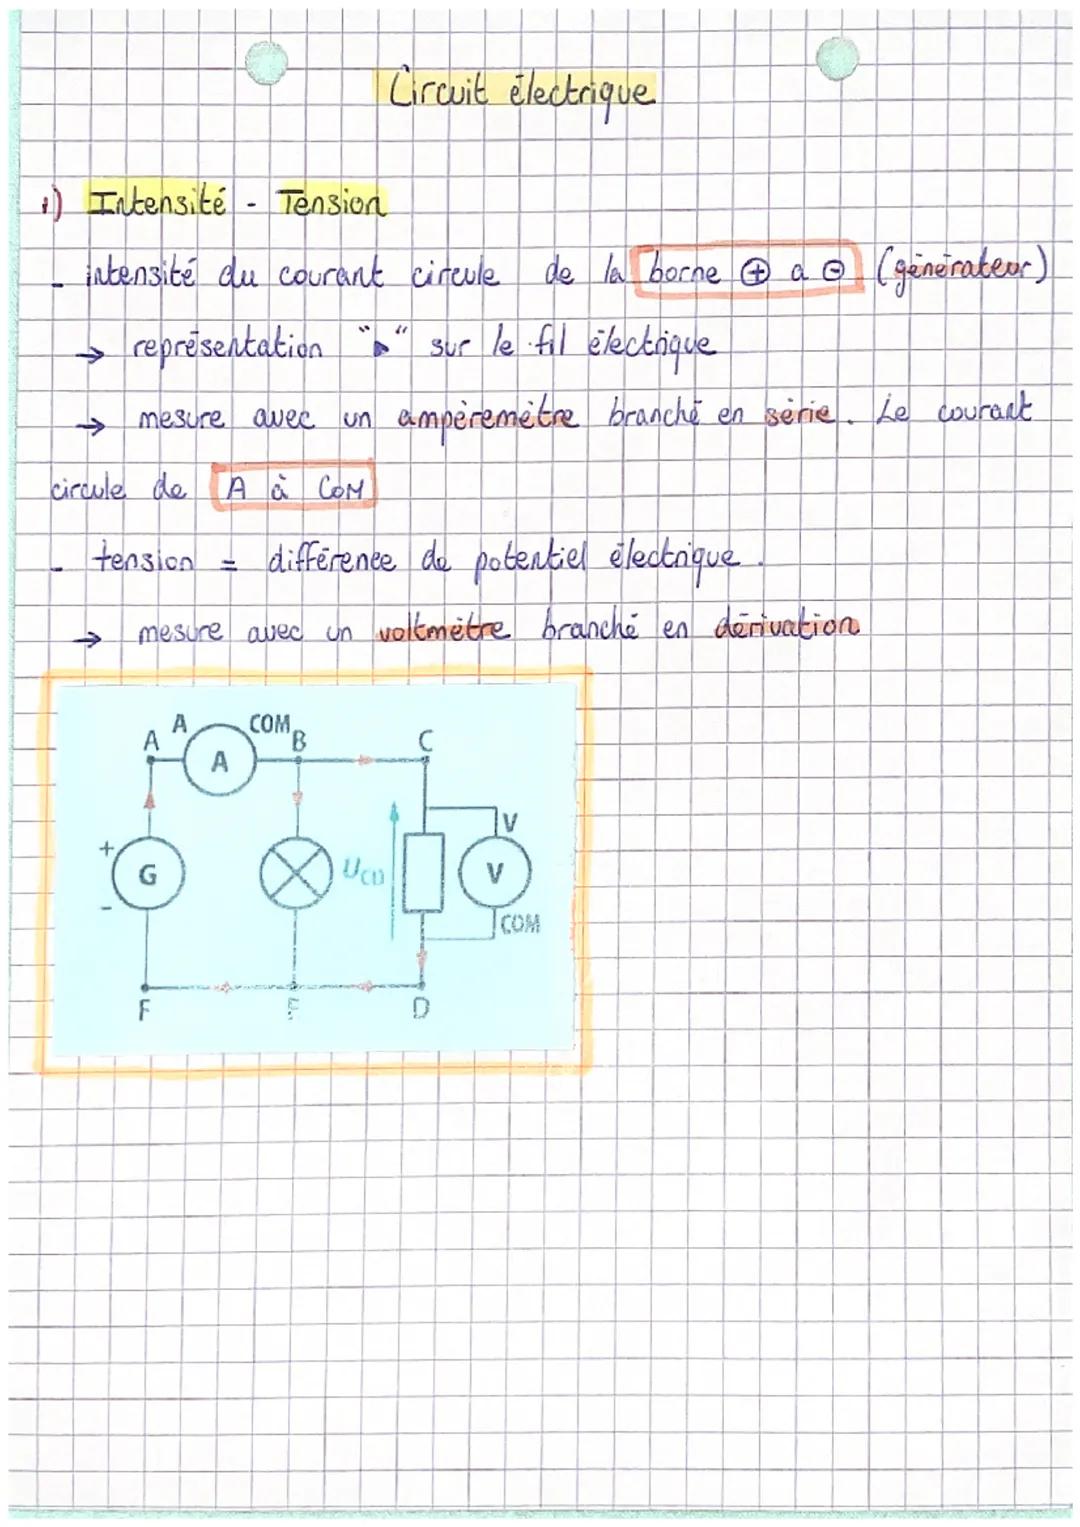 Circuit électrique
1) Intensité - Tension
- intensité du courant circule de la borne ⊕ a ⊖ (générateur)
→ représentation "▶" sur le fil électrique
→ mesure avec un ampèremètre branché en série. Le courant
circule de A à COM
- tension = différence de potentiel électrique.
→ mesure avec un voltmètre branché en dérivation
A A COM B C
A
+ G -
UCD
V
V
COM
F E D